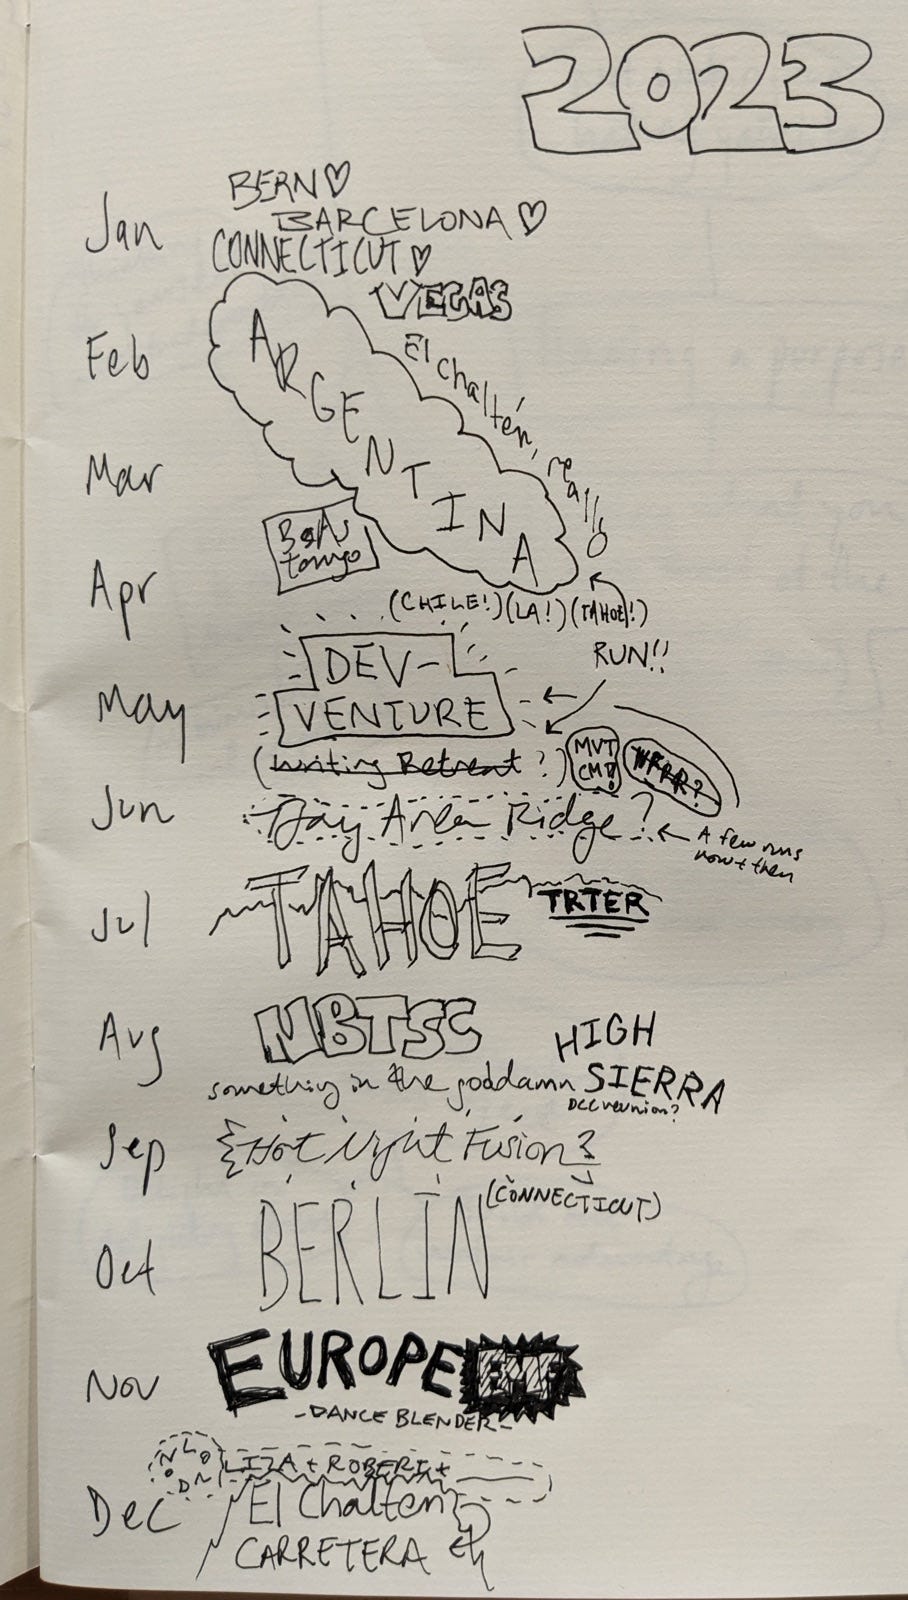 2023
Jan
BERN♡
BARCELONA♡
CONNECTICUT♡
VEGAS
Feb
ARGENTINA
El Chaltén, really
Mar
BsAs
tango
Apr
(CHILE!) (LA!) (TAHOE!)
RUN!!
DEV-
May
VENTURE
(Writing Retreat?)
MVT
CMD!
WRRR?
Jun
Bay Area Ridge?
A few runs
now + then
Jul
TAHOE
TRTER
Aug
NBTSC
HIGH
something in the goddamn SIERRA
DCC reunion?
Sep
{Hot Night Fusion?
(CONNECTICUT)
Oct
BERLIN
Nov
EUROPE
-DANCE BLENDER-
LONDON
LIZA + ROBERT +
Dec
El Chalten
CARRETERA eh